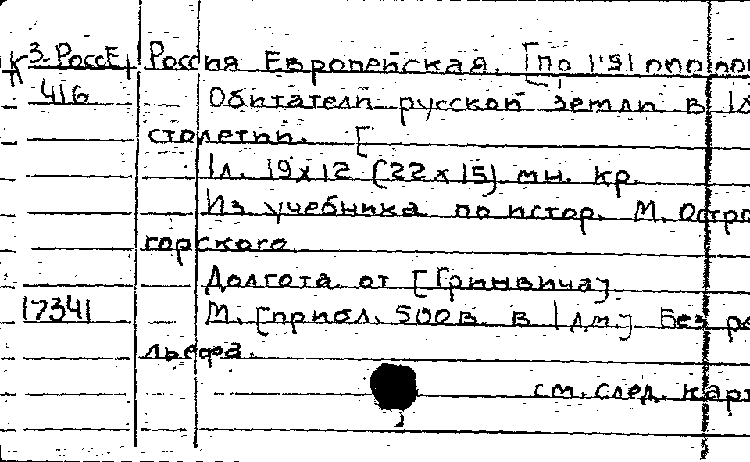 К 3. РоссЕ Россия Европейская. [По
416 Обитатели русской земли в IX
столетии. [
1 л. 19 х 12 (22 х 15) мн. кр.
Из учебника по истор. М. Остро
горского
Долгота от [Гринвича].
17341 М. [прибл. 500 в. в 1 дм.] Без ре
льефа.
см. след. карт